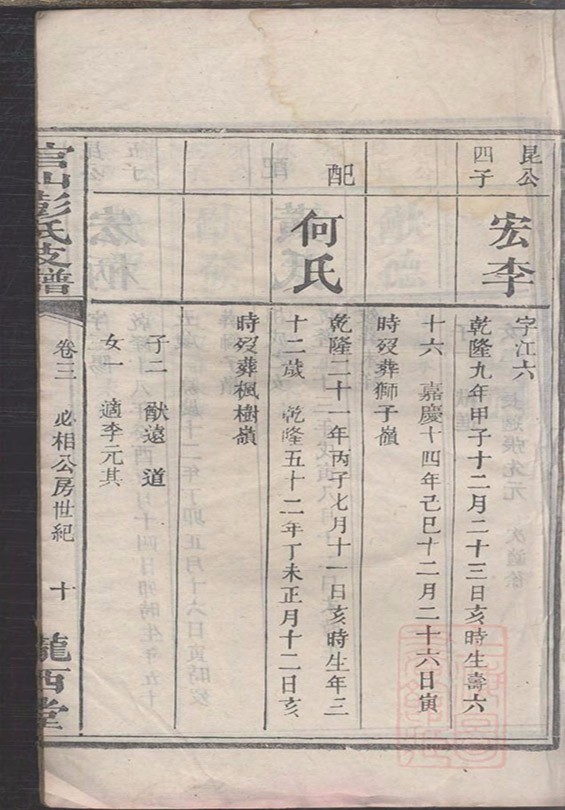 昆公
四子
宏李
字江六
乾隆九年甲子十二月二十三日亥時生壽六
十六　嘉慶十四年己巳十二月二十六日寅
時歿葬獅子嶺
配
何氏
乾隆二十一年丙子七月十一日亥時生年三
十二歲　乾隆五十二年丁未正月十二日亥
時歿葬楓樹嶺
子二　猷遠　道
女一　適李元其
官山彭氏支譜
卷三　必相公房世紀　十　隴西堂